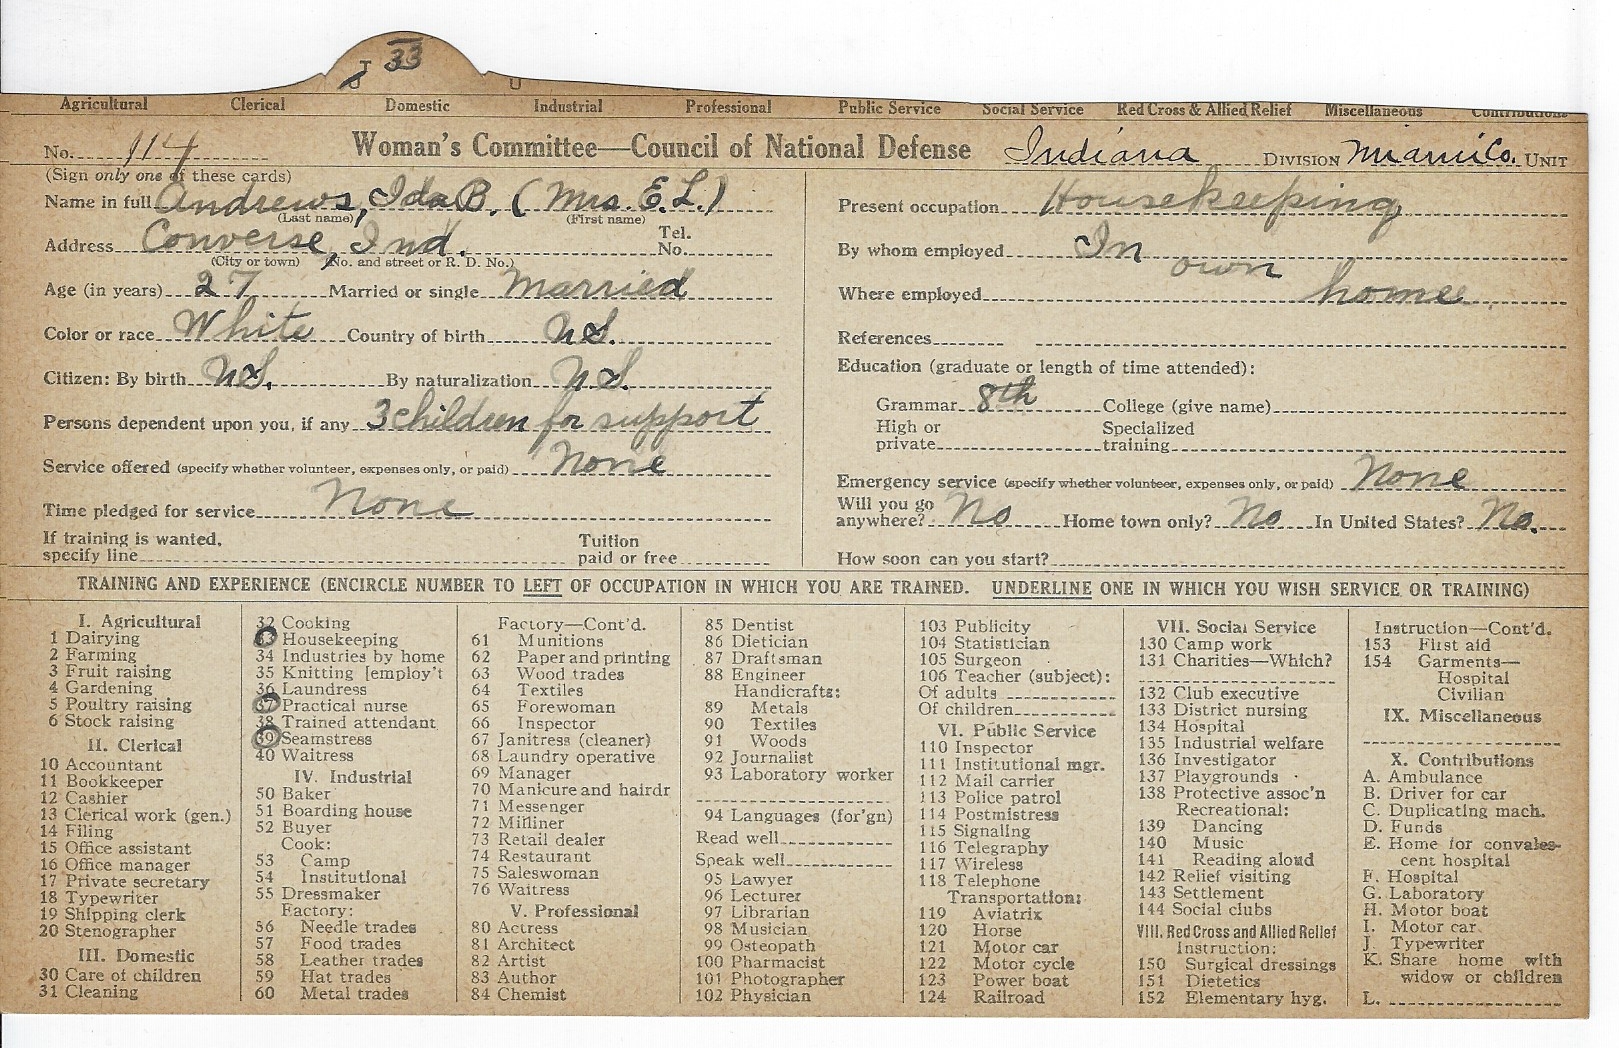 T 33
Agricultural Clerical Domestic Industrial Professional Public Service Social Service Red Cross & Allied Relief Miscellaneous Contributions
No. 114 Woman's Committee—Council of National Defense Indiana DIVISION Miami Co. UNIT
(Sign only one of these cards)
Name in full Andrews, Ida B. (Mrs. E. L.)
(Last name) (First name)
Address Converse, Ind. Tel. No.
(City or town) (No. and street or R. D. No.)
Age (in years) 27 Married or single Married
Color or race White Country of birth U S.
Citizen: By birth U S. By naturalization U S.
Persons dependent upon you, if any 3 children for support
Service offered (specify whether volunteer, expenses only, or paid) None
Time pledged for service None
If training is wanted, specify line Tuition paid or free
Present occupation Housekeeping
By whom employed In own
Where employed home
References
Education (graduate or length of time attended):
Grammar 8th College (give name)
High or private Specialized training
Emergency service (specify whether volunteer, expenses only, or paid) None
Will you go anywhere? No Home town only? No In United States? No.
How soon can you start?
TRAINING AND EXPERIENCE (ENCIRCLE NUMBER TO LEFT OF OCCUPATION IN WHICH YOU ARE TRAINED. UNDERLINE ONE IN WHICH YOU WISH SERVICE OR TRAINING)
I. Agricultural
1 Dairying
2 Farming
3 Fruit raising
4 Gardening
5 Poultry raising
6 Stock raising
II. Clerical
10 Accountant
11 Bookkeeper
12 Cashier
13 Clerical work (gen.)
14 Filing
15 Office assistant
16 Office manager
17 Private secretary
18 Typewriter
19 Shipping clerk
20 Stenographer
III. Domestic
30 Care of children
31 Cleaning
32 Cooking
33 Housekeeping
34 Industries by home
35 Knitting [employ't
36 Laundress
37 Practical nurse
38 Trained attendant
39 Seamstress
40 Waitress
IV. Industrial
50 Baker
51 Boarding house
52 Buyer
Cook:
53 Camp
54 Institutional
55 Dressmaker
Factory:
56 Needle trades
57 Food trades
58 Leather trades
59 Hat trades
60 Metal trades
Factory—Cont'd.
61 Munitions
62 Paper and printing
63 Wood trades
64 Textiles
65 Forewoman
66 Inspector
67 Janitress (cleaner)
68 Laundry operative
69 Manager
70 Manicure and hairdr
71 Messenger
72 Milliner
73 Retail dealer
74 Restaurant
75 Saleswoman
76 Waitress
V. Professional
80 Actress
81 Architect
82 Artist
83 Author
84 Chemist
85 Dentist
86 Dietician
87 Draftsman
88 Engineer
Handicrafts:
89 Metals
90 Textiles
91 Woods
92 Journalist
93 Laboratory worker
94 Languages (for'gn)
Read well
Speak well
95 Lawyer
96 Lecturer
97 Librarian
98 Musician
99 Osteopath
100 Pharmacist
101 Photographer
102 Physician
103 Publicity
104 Statistician
105 Surgeon
106 Teacher (subject):
Of adults
Of children
VI. Public Service
110 Inspector
111 Institutional mgr.
112 Mail carrier
113 Police patrol
114 Postmistress
115 Signaling
116 Telegraphy
117 Wireless
118 Telephone
Transportation:
119 Aviatrix
120 Horse
121 Motor car
122 Motor cycle
123 Power boat
124 Railroad
VII. Social Service
130 Camp work
131 Charities—Which?
132 Club executive
133 District nursing
134 Hospital
135 Industrial welfare
136 Investigator
137 Playgrounds
138 Protective assoc'n
Recreational:
139 Dancing
140 Music
141 Reading aloud
142 Relief visiting
143 Settlement
144 Social clubs
VIII. Red Cross and Allied Relief
Instruction:
150 Surgical dressings
151 Dietetics
152 Elementary hyg.
Instruction—Cont'd.
153 First aid
154 Garments—
Hospital
Civilian
IX. Miscellaneous
X. Contributions
A. Ambulance
B. Driver for car
C. Duplicating mach.
D. Funds
E. Home for convales-
cent hospital
F. Hospital
G. Laboratory
H. Motor boat
I. Motor car
J. Typewriter
K. Share home with
widow or children
L.